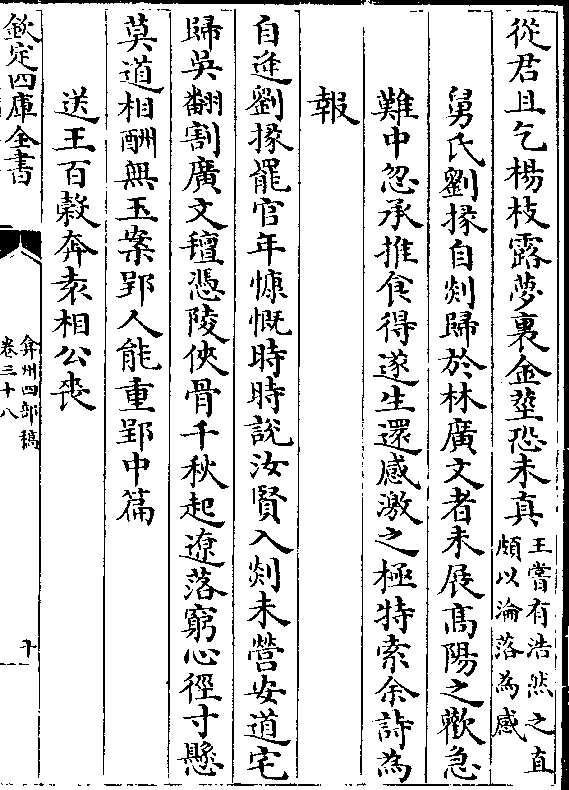 從君且乞楊枝露夢裏金莖恐未真王嘗有浩然之直
頗以淪落為感
舅氏劉掾自剡歸於林廣文者未展髙陽之歡急
難中忽承推食得遂生還感激之極特索余詩為
報
自進劉掾罷官年慷慨時時說汝賢入剡未營安道宅
歸吳翻割廣文氊憑陵俠骨千秋起遼落窮心徑寸懸
莫道相酬無玉案郢人能重郢中篇
送王百穀奔袁相公喪
欽定四庫全書
弇州四部稿
卷三十八
十